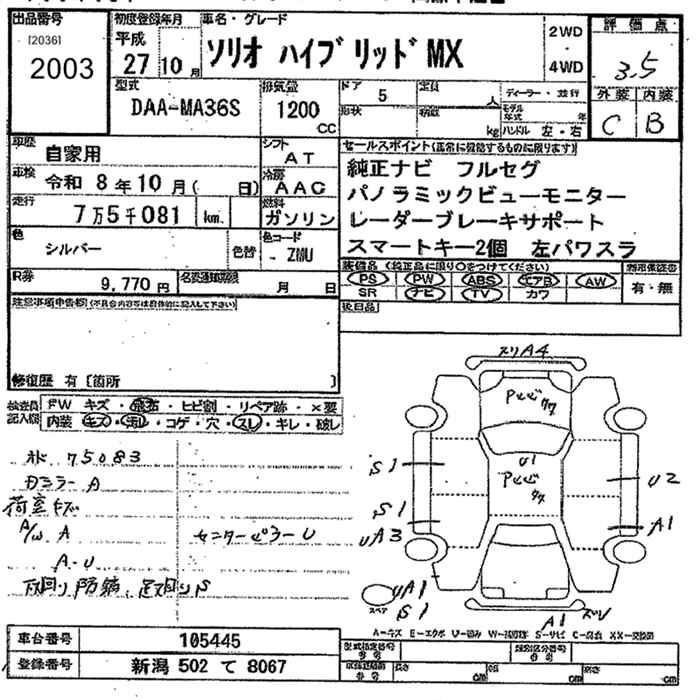 出品番号
[2036]
2003
初度登録年月
平成
27 10 月
車名・グレード
ソリオ ハイブリッドMX
2WD
・
4WD
評価点
3.5
外装 内装
C B
型式
DAA-MA36S
排気量
1200 CC
ドア 5
形状
定員 人
積載 kg
ディーラー・並行
モデル年式 年
ハンドル 左・右
車歴
自家用
シフト
AT
車検 令和 8年10月( 日)
冷房
AAC
走行 7万5千081 km
燃料
ガソリン
色
シルバー
色替
色コード
ZMU
R券 9,770 円
名変通知期限 月 日
セールスポイント(正常に確認するものに限ります)
純正ナビ フルセグ
パノラミックビューモニター
レーダーブレーキサポート
スマートキー2個 左パワスラ
装備品(純正品に限り○をつけてください)
PS PW ABS エアB AW
SR ナビ TV カワ
新車保証書
有・無
後日品
注意事項申告欄(不具合内容等は具体的に記入して下さい)
修復歴 有 [箇所 ]
検査員記入欄
FW キズ・飛石・ヒビ割・リペア跡・×要
内装 キズ・汚れ・コゲ・穴・スレ・キレ・破レ
75083
ミラー A
荷室キズ
A/W A
A-U
下回り防錆、足回りS
センターピラーU
スリA4
U1
S1
S1
UA3
U2
A1
スペア
UA1
S1
A1
A-キズ E-エクボ U-凹み W-補修跡 S-サビ C-腐食 XX-交換済
車台番号 105445
登録番号 新潟 502 て 8067
型式指定番号
類別区分番号
長さ cm
幅 cm
高さ cm